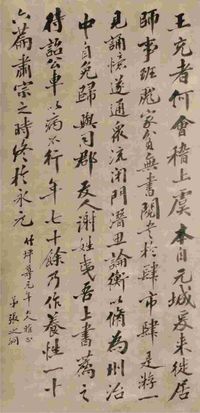 王充者何會稽上虞本自元城爰來徙居
師事班彪家貧無書閱書於肆市肆是游一
見誦憶遂通衆流閉門潛思論衡以脩為州治
中自免歸與同郡友人謝姓夷吾上書薦之
待詔公車以病不行年七十餘乃作養性一十
六篇肅宗之時終於永元
竹坪尊兄年大雅正
弟張之洞